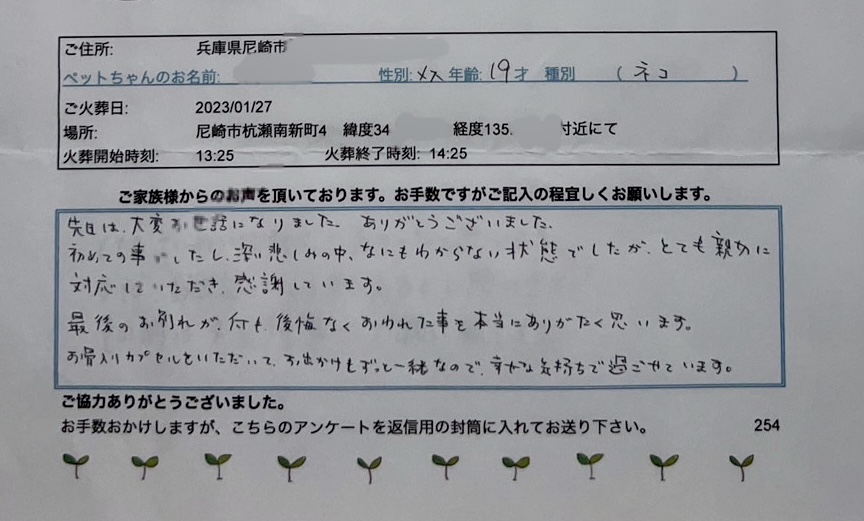 ご住所: 兵庫県尼崎市
ペットちゃんのお名前: 性別: メス 年齢: 19才 種別 （ ネコ ）
ご火葬日: 2023/01/27
場所: 尼崎市杭瀬南新町4 緯度34 経度135. 付近にて
火葬開始時刻: 13:25 火葬終了時刻: 14:25
ご家族様からのお声を頂いております。お手数ですがご記入の程宜しくお願いします。
先日は、大変お世話になりました。ありがとうございました。
初めての事でしたし、深い悲しみの中、なにもわからない状態でしたが、とても親切に
対応していただき、感謝しています。
最後のお別れが、何も、後悔なくおわれた事を本当にありがたく思います。
お骨入りカプセルをいただいて、お出かけもずっと一緒なので、幸せな気持ちで過ごせています。
ご協力ありがとうございました。
お手数おかけしますが、こちらのアンケートを返信用の封筒に入れてお送り下さい。 254